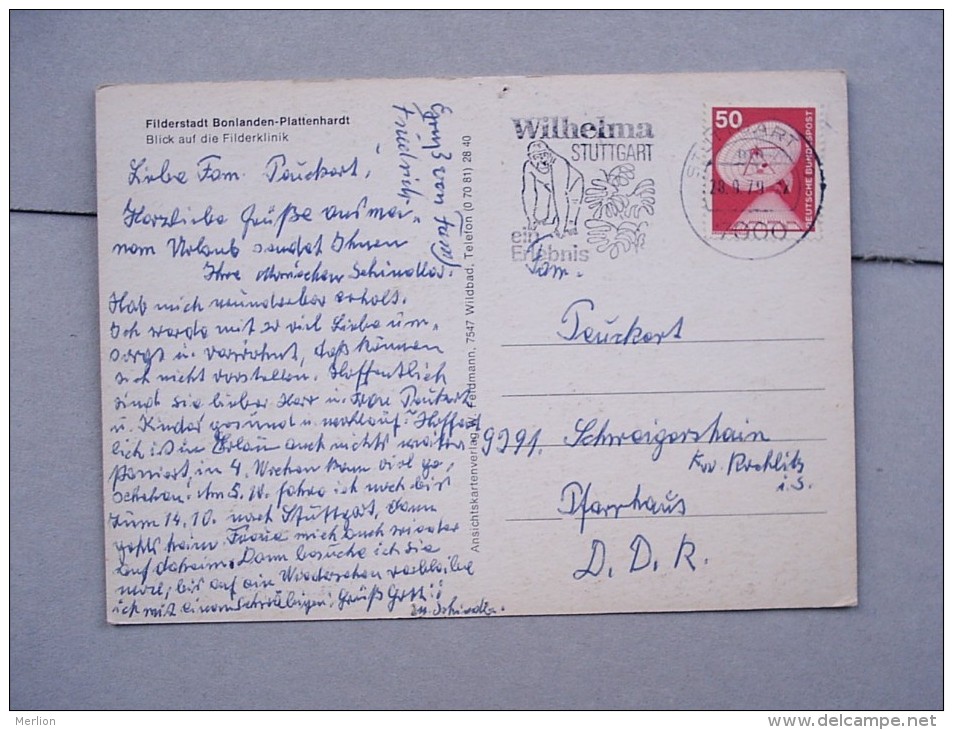 Filderstadt Bonlanden-Plattenhardt
Blick auf die Filderklinik
Liebe Fam. Peuckert!
Herzliche Grüße aus mei-
nem Urlaub sendet Ihnen
Ihre
Hab mich wunderbar erholt.
Ich werde mit so viel Liebe um-
sorgt u. verwöhnt, daß können
sich nicht vorstellen. Hoffentlich
sind sie lieber Herr u. Frau Peukert
u. Kinder gesund u. wohlauf. Hoffent
lich ist in auch nichts weiter
Passiert, in 4. Wochen kann viel ge-
schehen. Am 5.10. fahre ich noch bis
zum 14.10. nach Stuttgart, dann
gehts heim. Freue mich auch wieder
auf daheim. Dann besuche ich sie
mal, bis auf ein Wiedersehen verbleibe
ich mit einem Schwäbigen, Grüß Gott!
Gruß von Fam
Friedrich
Ansichtskartenverlag W. Feldmann, 7547 Wildbad, Telefon (0 70 81) 28 40
Wilhelma
STUTTGART
ein
Erlebnis
STUTTGART
7000
50
DEUTSCHE BUNDESPOST
Fam.
Peuckert
9291. Schweigershain
Krs. Rochlitz
i. S.
Pfarrhaus
D. D. R.
Merlion
http://www.delcampe.net